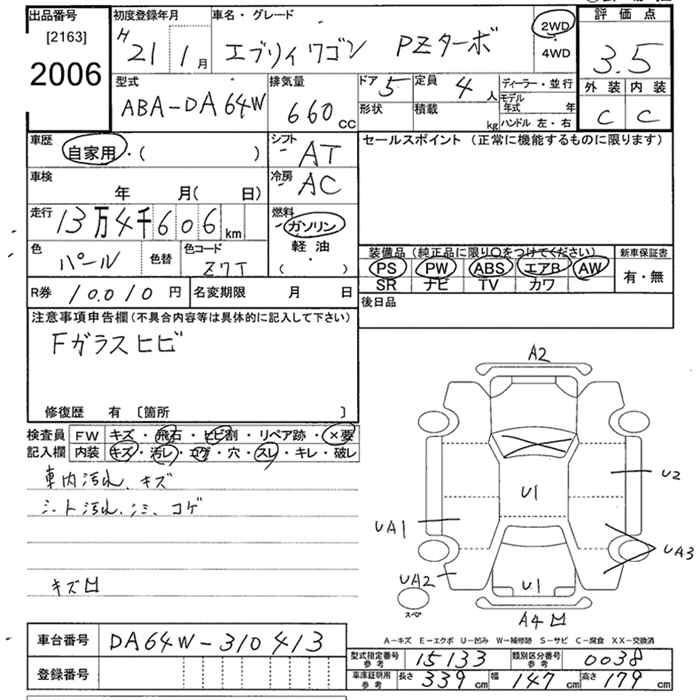 出品番号 初度登録年月 車名・グレード 評価点
[2163] H 21年 1月 エブリイワゴン PZターボ 2WD ・ 4WD 3.5
2006
型式 排気量 ドア 5 定員 4人 ディーラー・並行 外装 内装
ABA-DA64W 660cc 形状 積載 kg モデル年式 年 C C
ハンドル 左・右
車歴 自家用・( ) シフト AT セールスポイント (正常に機能するものに限ります)
車検 年 月( 日) 冷房 AC
走行 13万4千606km 燃料 ガソリン
軽油
( ・ )
色 パール 色替 色コード Z7T
装備品(純正品に限り○をつけてください) 新車保証書
PS PW ABS エアB AW 有・無
SR ナビ TV カワ
R券 10,010円 名変期限 月 日 後日品
注意事項申告欄(不具合内容等は具体的に記入して下さい)
Fガラスヒビ
修復歴 有 [箇所 ]
検査員 FW キズ・飛石・ヒビ割・リペア跡・×要
記入欄 内装 キズ・汚レ・コゲ・穴・スレ・キレ・破レ
車内汚れ、キズ
シート汚れ、シミ、コゲ
キズ凹
A2
U1
U2
UA1
UA3
UA2
U1
スペア
A4凹
A-キズ E-エクボ U-凹み W-補修跡 S-サビ C-腐食 XX-交換済
車台番号 DA64W-310413
型式指定番号 参考 15133 類別区分番号 参考 0038
登録番号
車庫証明用 参考 長さ 339cm 幅 147cm 高さ 179cm